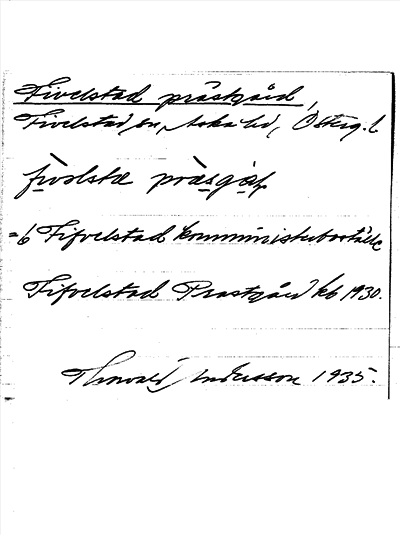 Fivelstad prästgård,
Fivelstad sn, Aska hd, Österg. l.
pràsgå̀ḷ
= 6 Fifvelstad komministerboställe
Fifvelstad Prästgård kb 1930.
Thorvald Andersson 1935.